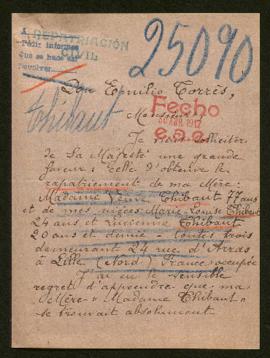 A REPATRIACIÓN
CIVIL
Pedir informes
que se hace en
25090
Don Emilio Torrés,
Thibaut
Fecho
ABR. 1917
Monsieur
Je viens solliciter
de Sa Majesté une grande
faveur: Celle d'obtenir le
rapatriement de ma Mère:
Madame Veuve Thibaut 77 ans
et de mes nièces Marie-Louise Thibaut
24 ans et Thibaut
20 ans et demie - toutes trois
demeurant 24 rue d'Arras
à Lille (Nord) France occupée
J'ai eu le sensible
regret d'apprendre que ma
Mère "Madame Thibaut"
se trouvait absolument